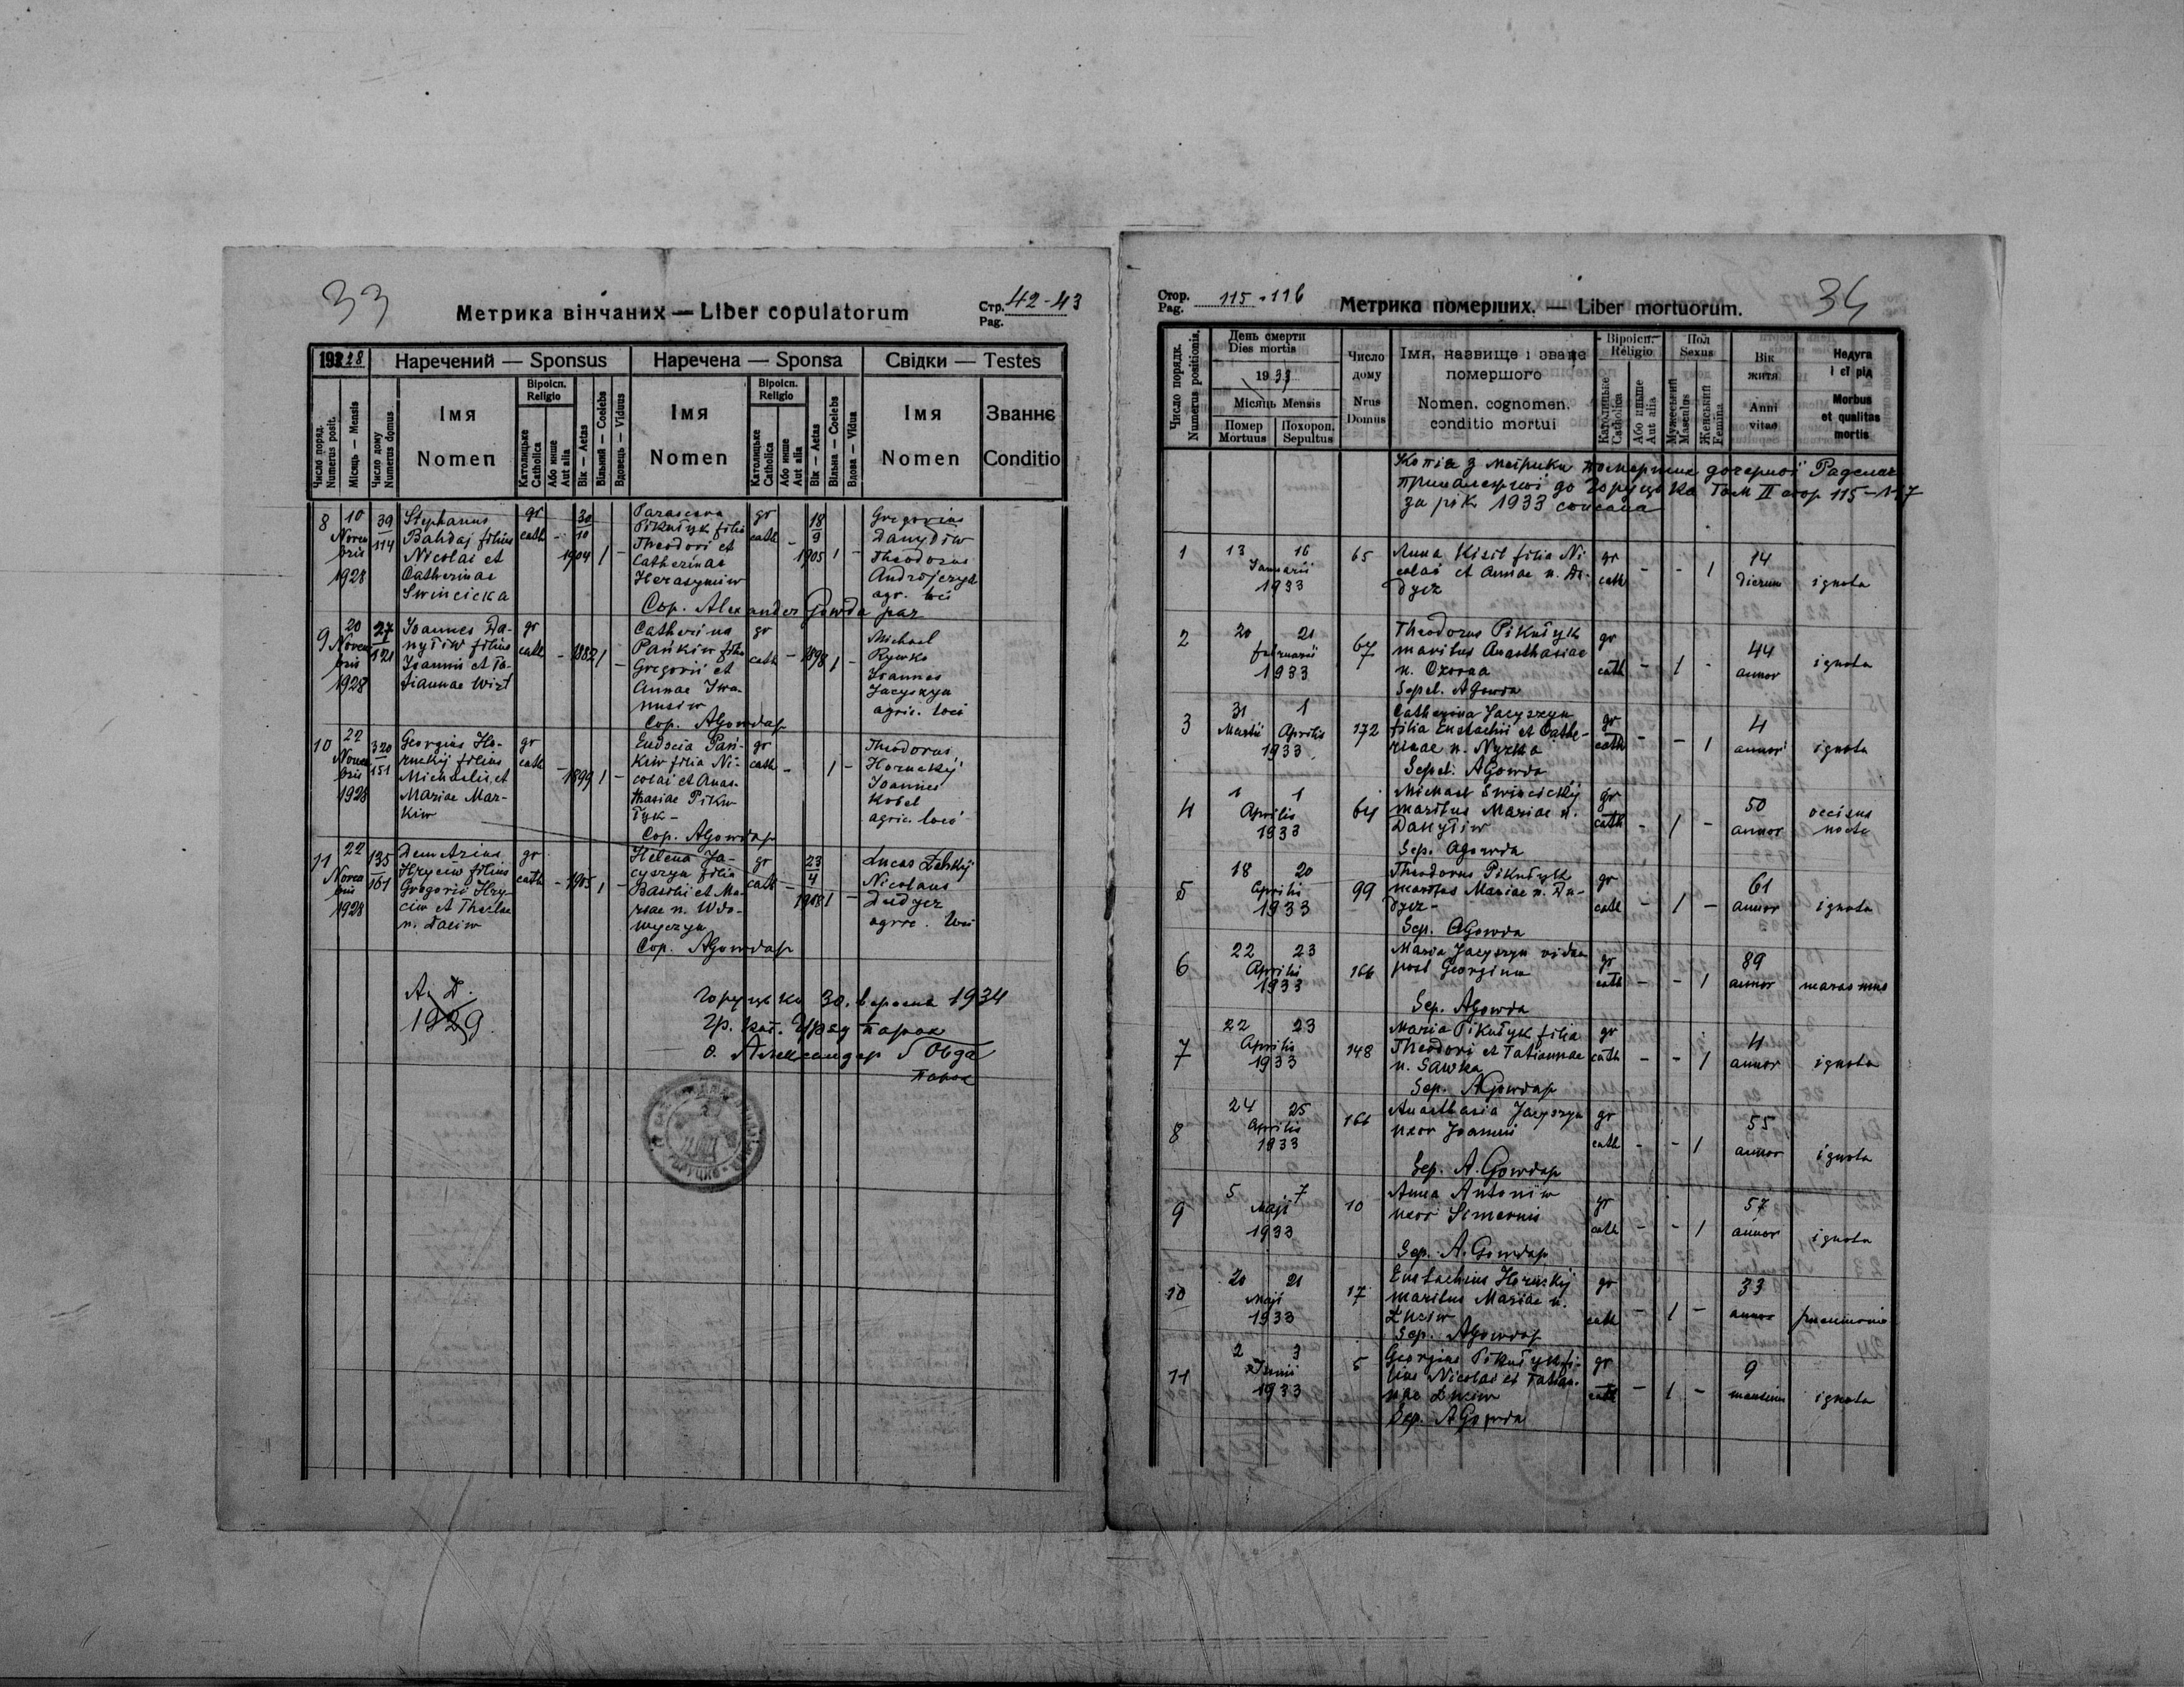 33
Метрика вінчаних — Liber copulatorum
Стр. 42-43
Pag.
1928
Наречений — Sponsus
Наречена — Sponsa
Свідки — Testes
Число поряд.
Numerus posit.
Місяць — Mensis
Число дому
Numerus domus
Імя
Nomen
Віроісп.
Religio
Католицьке
Catholica
Або инше
Aut alia
Вік — Aetas
Вільний — Coelebs
Вдовець — Viduus
Імя
Nomen
Віроісп.
Religio
Католицьке
Catholica
Або инше
Aut alia
Вік — Aetas
Вільна — Coelebs
Вдова — Vidua
Імя
Nomen
Званнє
Conditio
8
10
Novem
bris
1928
39
114
Stephanus
Bahdaj filius
Nicolai et
Catherinae
Swincicka
gr
cath
-
30
10
1904
1
-
Parasceva
Pikułyk filia
Theodori et
Catherinae
Herasymiw
gr
cath
-
18
9
1905
1
-
Gregorius
Danyliw
Theodorus
Andrejczyk
agr. loci
Cop. Alexander Gowda par
9
20
Novem
bris
1928
27
121
Joannes Da-
nyliw filius
Joannis et Ta-
tiannae Wirt
gr
cath
-
1882
1
-
Catherina
Pańkiw filia
Gregorii et
Annae Iwa-
nusiw
gr
cath
-
1898
1
-
Michael
Rywko
Joannes
Jacyszyn
agric. loci
Cop. AGowdap
10
22
Novem
bris
1928
320
151
Georgius Ho-
ruckij filius
Michaelis et
Mariae Mar-
kiw
gr
cath
-
1899
1
-
Eudocia Pań-
kiw filia Ni-
colai et Anas-
thasiae Piku-
łyk-
gr
cath
-
1
-
Theodorus
Horuckij
Joannes
Kobel
agric. loci
Cop. AGowdap
11
22
Novem
bris
1928
135
161
Demetrius
Hryciw filius
Gregorii Hry-
ciw et Theclae
n. Daciw
gr
cath
-
1905
1
-
Helena Ja-
cyszyn filia
Basilii et Ma-
riae n. Wdo-
wyczyn
gr
cath
-
23
4
1908
1
-
Lucas Zaleskij
Nicolaus
Dudycz
agric. loci
Cop. AGowdap
A. D.
1929
Горуцько 30. вересня 1934
Гр. кат. Уряд парох
о. Александер Говда
парох
34
Стор.
Pag. 115-116
Метрика померших. — Liber mortuorum.
Число порядк.
Numerus positionis.
День смерти
Dies mortis
1933
Місяць Mensis
Помер
Mortuus
Похорон.
Sepultus
Число
дому
Nrus
Domus
Імя, назвище і званє
помершого
Nomen, cognomen,
conditio mortui
Віроісп.
Religio
Католицьке
Catholica
Або иньше
Aut alia
Пол
Sexus
Мужеський
Masculus
Женський
Femina
Вік
житя
Anni
vitae
Недуга
і єї рід
Morbus
et qualitas
mortis
Копія з метрики померших дочерної Раделич
приналежної до Горуцька Том II стор 115-117
за рік 1933 списана
1
13
16
Januarii
1933
65
Anna Kisil filia Ni-
colai et Annae n. Du-
dycz
gr
cath
-
-
1
14
dierum
ignota
2
20
21
februarii
1933
67
Theodorus Pikułyk
maritus Anasthasiae
n.
Sepel. AGowda
gr
cath
-
1
-
44
annor
ignota
3
31
1
Martii Aprilis
1933
172
Catherina Jacyszyn
filia Eustachii et Cathe-
rinae n.
Sepel. AGowda
gr
cath
-
-
1
4
annor
ignota
4
1
1
Aprilis
1933
64
Michael Swincickij
maritus Mariae n.
Danyliw
Sep. AGowda
gr
cath
-
1
-
50
annor
occisus
nocte
5
18
20
Aprilis
1933
99
Theodorus Pikułyk
maritus Mariae n. Du-
dycz-
Sep. AGowda
gr
cath
-
1
-
61
annor
ignota
6
22
23
Aprilis
1933
166
Maria Jacyszyn vidua
post Georgium
Sep. AGowda
gr
cath
-
-
1
89
annor
marasmus
7
22
23
Aprilis
1933
148
Maria Pikułyk filia
Theodori et Tatiannae
n. Sawka
Sep. AGowdap
gr
cath
-
-
1
4
annor
ignota
8
24
25
Aprilis
1933
166
Anasthasia Jacyszyn
uxor Joannis
Sep. A. Gowdap
gr
cath
-
-
1
55
annor
ignota
9
5
7
Maji
1933
10
Anna Antoniw
uxor Simeonis
Sep. A. Gowdap
gr
cath
-
-
1
57
annor
ignota
10
20
21
Maji
1933
17
Eustachius Horuckij
maritus Mariae n.
Łuciw
Sep. AGowdap
gr
cath
-
1
-
33
annor
pneumonia
11
2
3
Junii
1933
5
Georgius Pikułyk fi-
lius Nicolai et Tatian-
nae Łuciw
Sep. AGowda
gr
cath
-
1
-
9
mensium
ignota